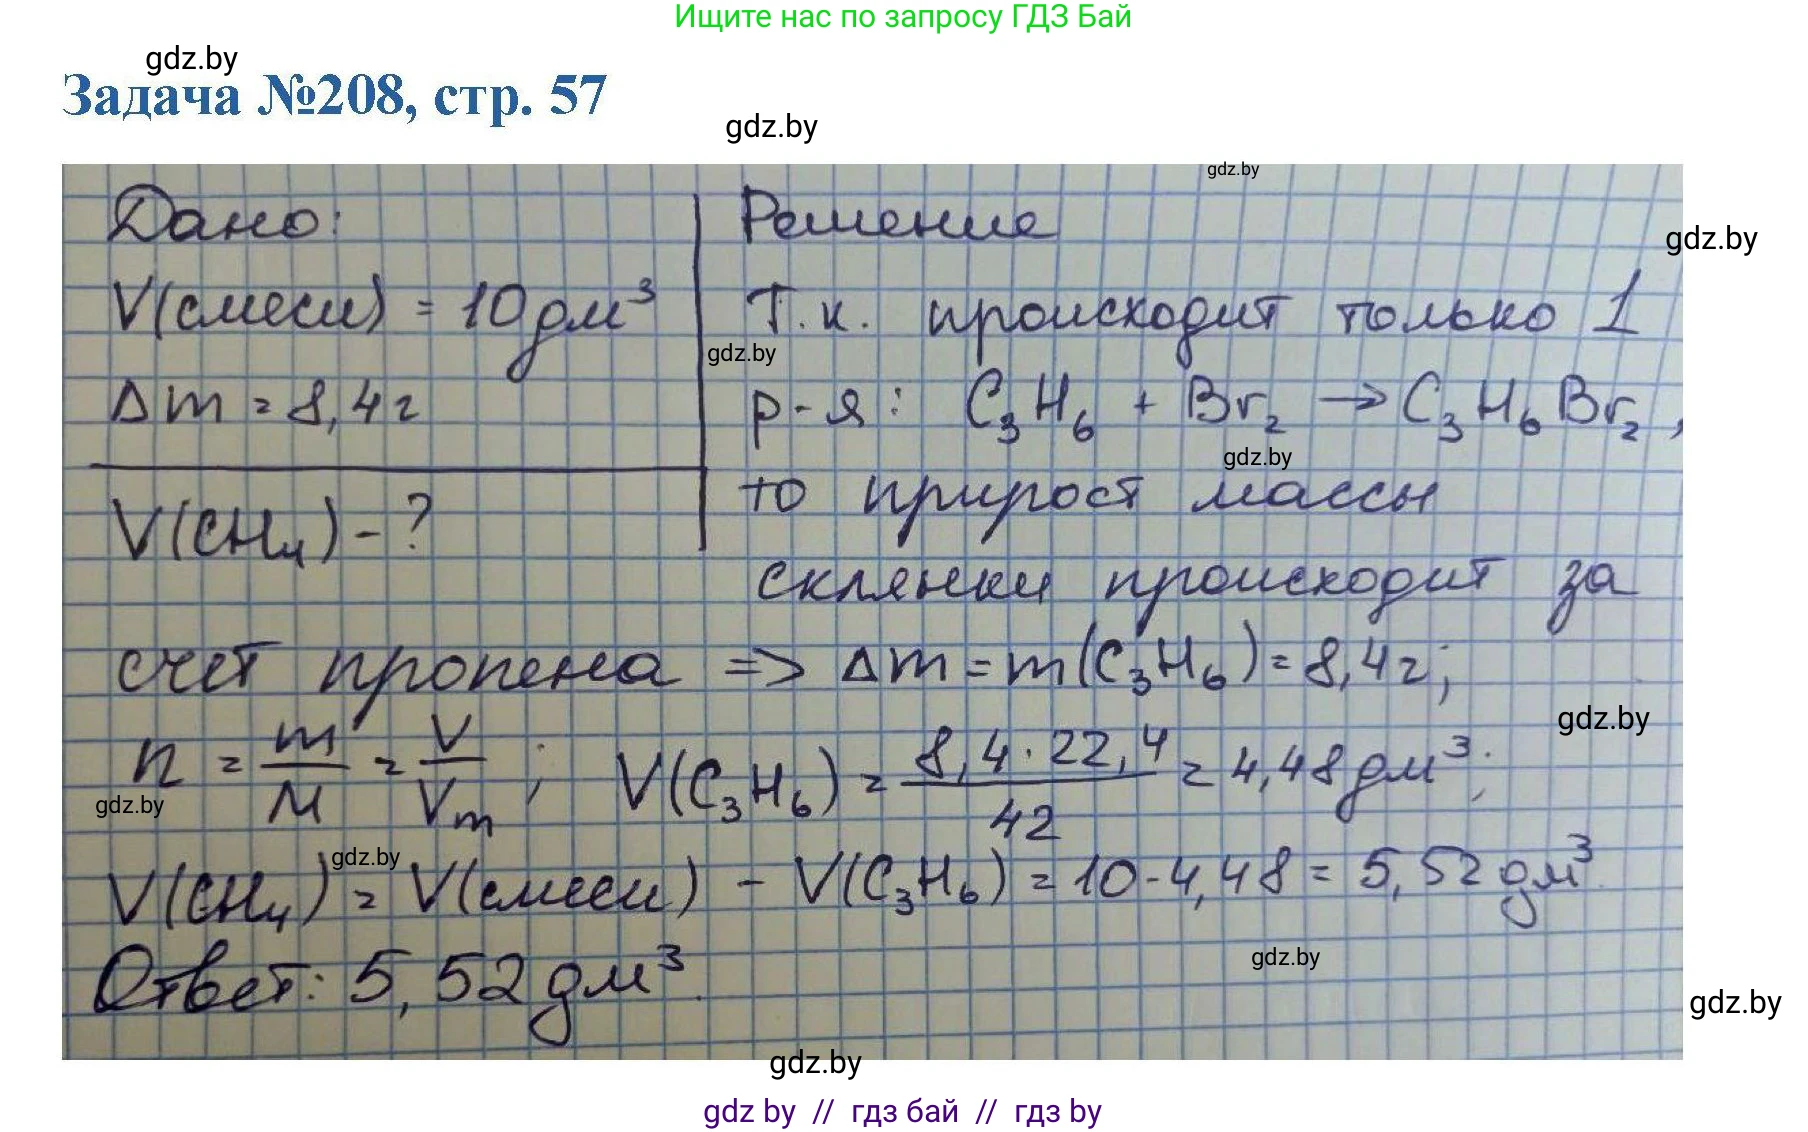 Ищите нас по запросу ГДЗ Бай
gdz.by
Задача №208, стр. 57
gdz.by
gdz.by
Дано:
Решение
gdz.by
V(смеси) = 10 дм³
Т.к. происходит только 1
gdz.by
Δm = 8,4г
р-я: C₃H₆ + Br₂ → C₃H₆Br₂,
gdz.by
V(CH₄) - ?
то прирост массы
склянки происходит за
счет пропена => Δm = m(C₃H₆) = 8,4г;
gdz.by
n = m/M = V/Vm ; V(C₃H₆) = 8,4·22,4/42 = 4,48 дм³;
gdz.by
gdz.by
V(CH₄) = V(смеси) - V(C₃H₆) = 10-4,48 = 5,52 дм³.
Ответ: 5,52 дм³.
gdz.by
gdz.by
gdz.by
gdz by // гдз бай // гдз by